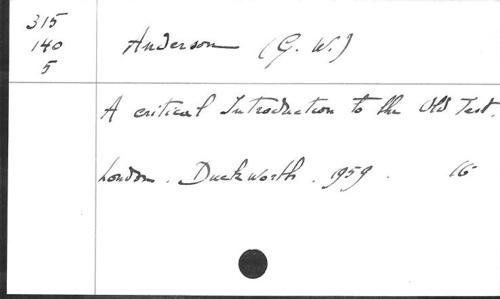 315
140
5
Anderson (G. W.)
A critical Introduction to the Old Test.
London. Duckworth. 1959. 16